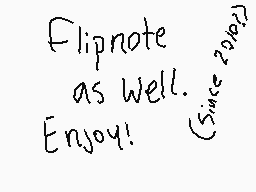 Flipnote
as well.
Enjoy!
(Since 2010?)